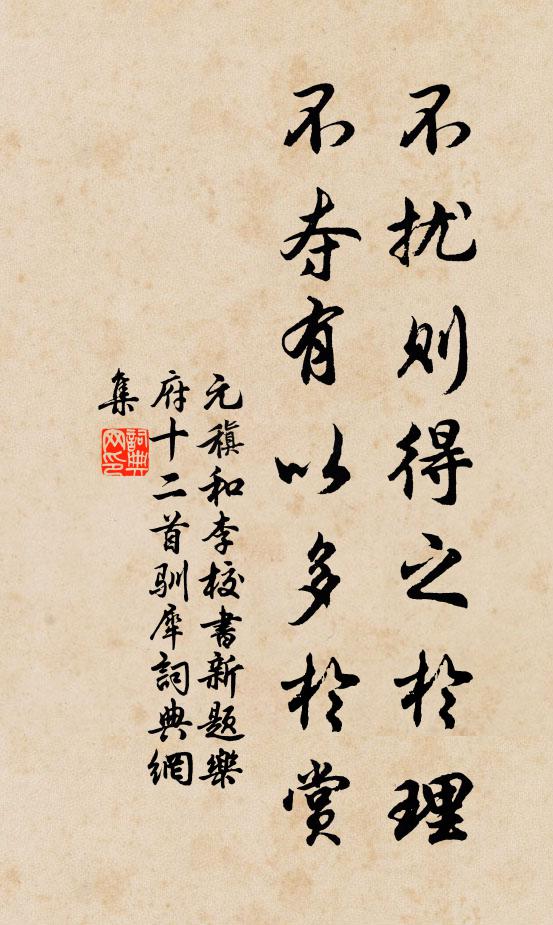 不扰则得之於理
不夺有以多於赏
元稹和李校書新题樂
府十二首驯犀詞典網
集
詞典
网印